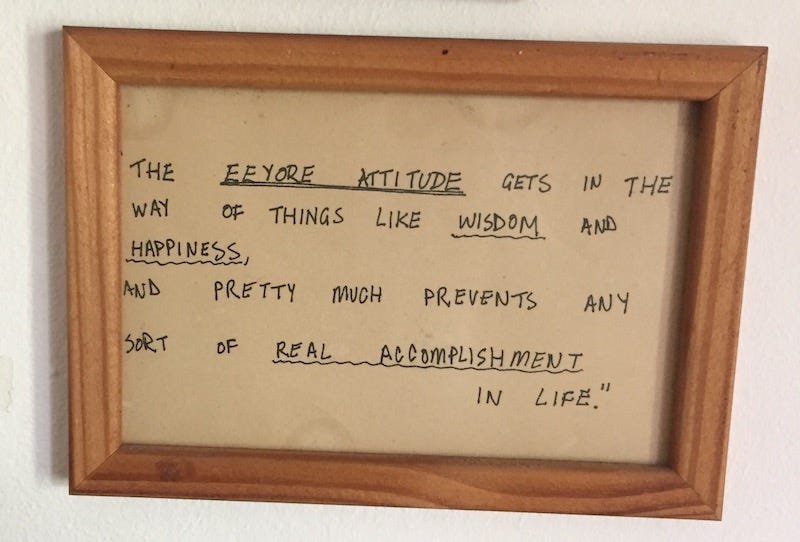 THE EEYORE ATTITUDE GETS IN THE
WAY OF THINGS LIKE WISDOM AND
HAPPINESS,
AND PRETTY MUCH PREVENTS ANY
SORT OF REAL ACCOMPLISHMENT
IN LIFE."